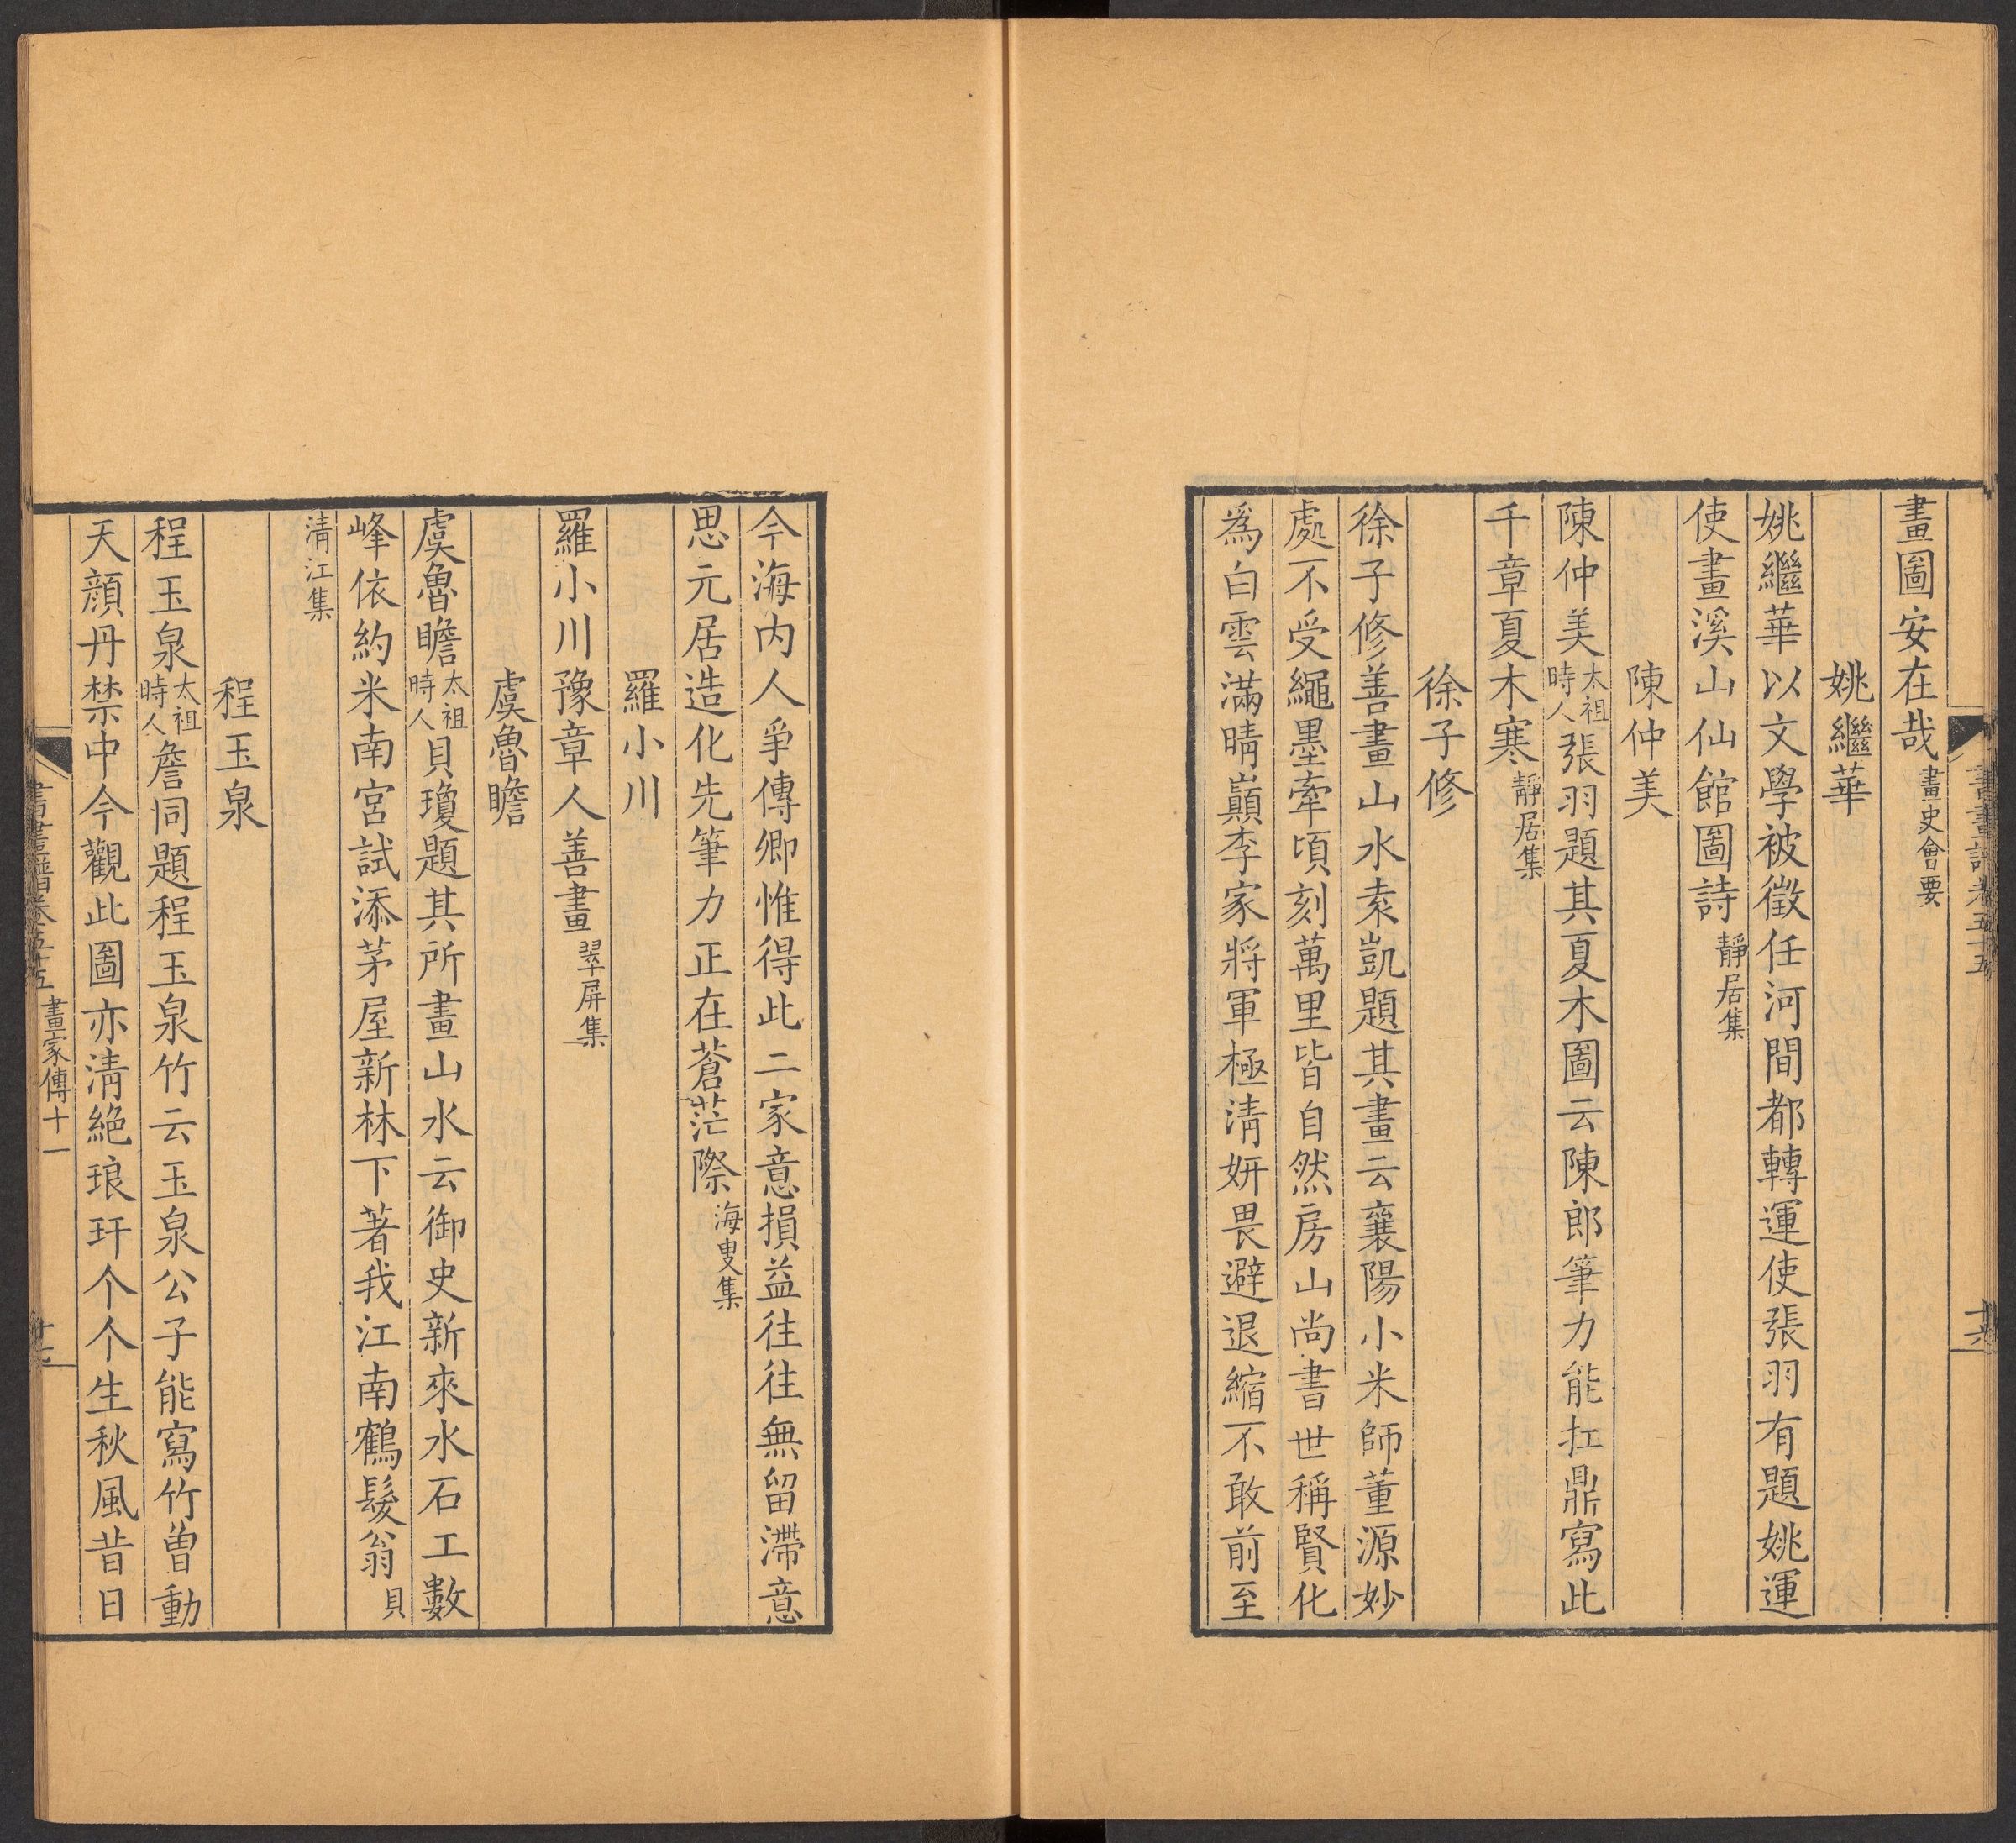 畫圖安在哉畫史會要
姚繼華
姚繼華以文學被徵任河間都轉運使張羽有題姚運
使畫溪山仙館圖詩靜居集
陳仲美
陳仲美太祖時人張羽題其夏木圖云陳郎筆力能扛鼎寫此
千章夏木寒靜居集
徐子修
徐子修善畫山水袁凱題其畫云襄陽小米師董源妙
處不受繩墨牽頃刻萬里皆自然房山尚書世稱賢化
爲白雲滿晴巔李家將軍極淸妍畏避退縮不敢前至
今海内人爭傳卿惟得此二家意損益往往無留滯意
思元居造化先筆力正在蒼茫際海叟集
羅小川
羅小川豫章人善畫翠屏集
虞魯瞻
虞魯瞻太祖時人貝瓊題其所畫山水云御史新來水石工數
峰依約米南宮試添茅屋新林下著我江南鶴髮翁貝
淸江集
程玉泉
程玉泉太祖時人詹同題程玉泉竹云玉泉公子能寫竹曾動
天顔丹禁中今觀此圖亦淸絕琅玕个个生秋風昔日
書畫譜卷五十五 畫家傳十一 十七